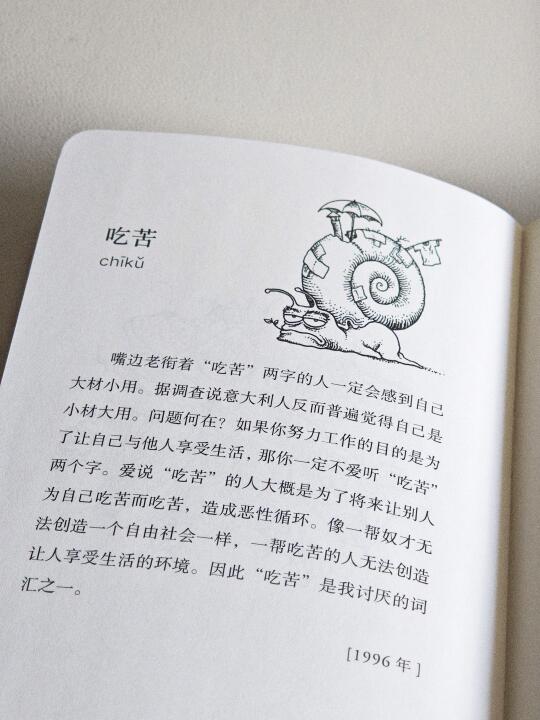 吃苦
chīkǔ
嘴边老衔着“吃苦”两字的人一定会感到自己
大材小用。据调查说意大利人反而普遍觉得自己是
小材大用。问题何在？如果你努力工作的目的是为
了让自己与他人享受生活，那你一定不爱听“吃苦”
两个字。爱说“吃苦”的人大概是为了将来让别人
为自己吃苦而吃苦，造成恶性循环。像一帮奴才无
法创造一个自由社会一样，一帮吃苦的人无法创造
让人享受生活的环境。因此“吃苦”是我讨厌的词
汇之一。
[1996 年]